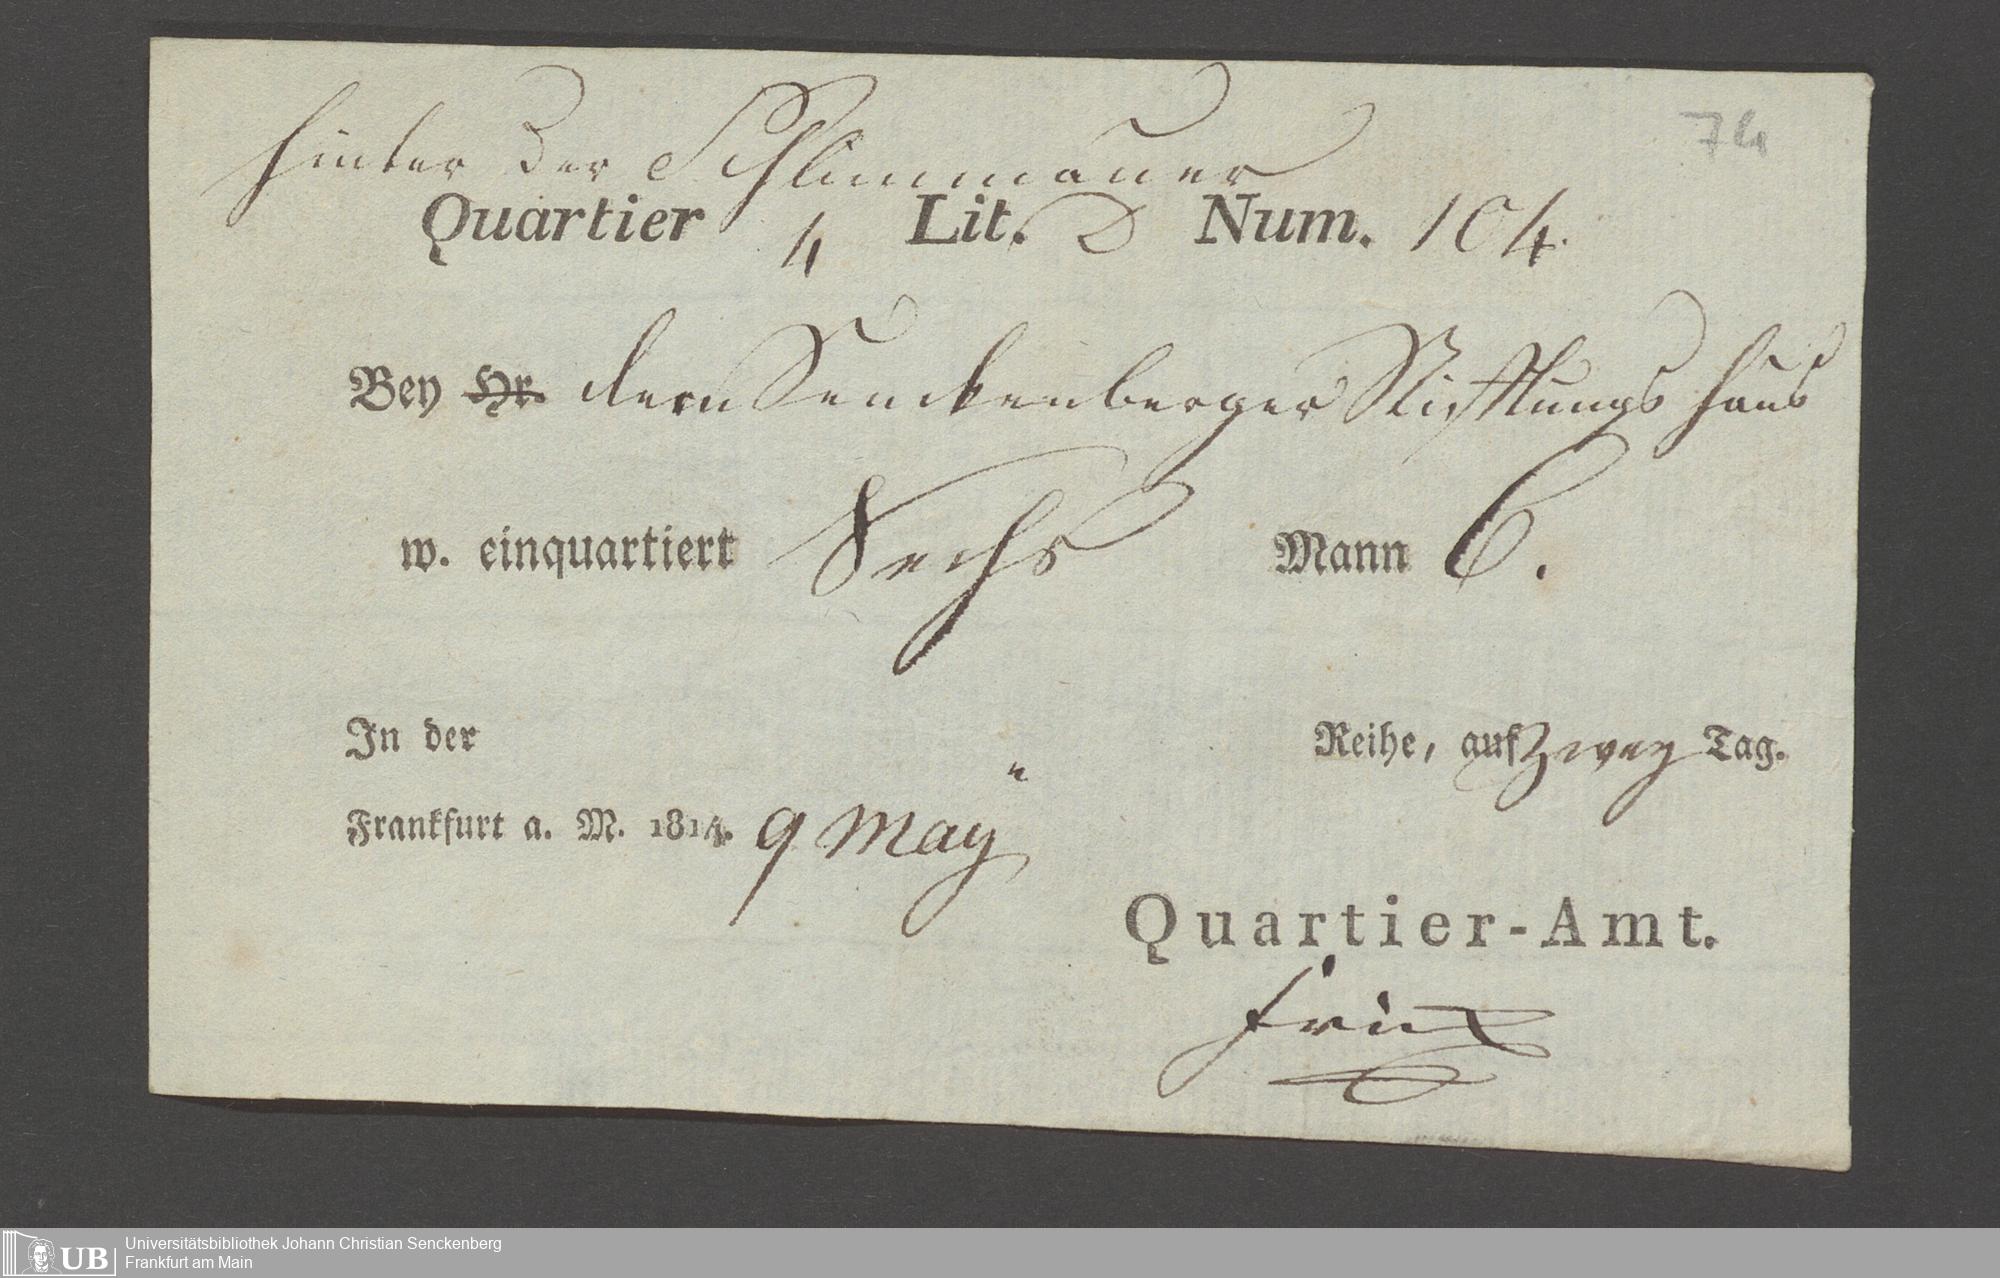 74
hinter der Schlimmauer
Quartier 4 Lit. D Num. 104.
Bey Hr. dem Senckenberger Stifftungs Haus
w. einquartiert Sechs Mann 6.
In der Reihe, auf Zwey Tag.
Frankfurt a. M. 1814. 9 May
Quartier-Amt.
UB Universitätsbibliothek Johann Christian Senckenberg
Frankfurt am Main